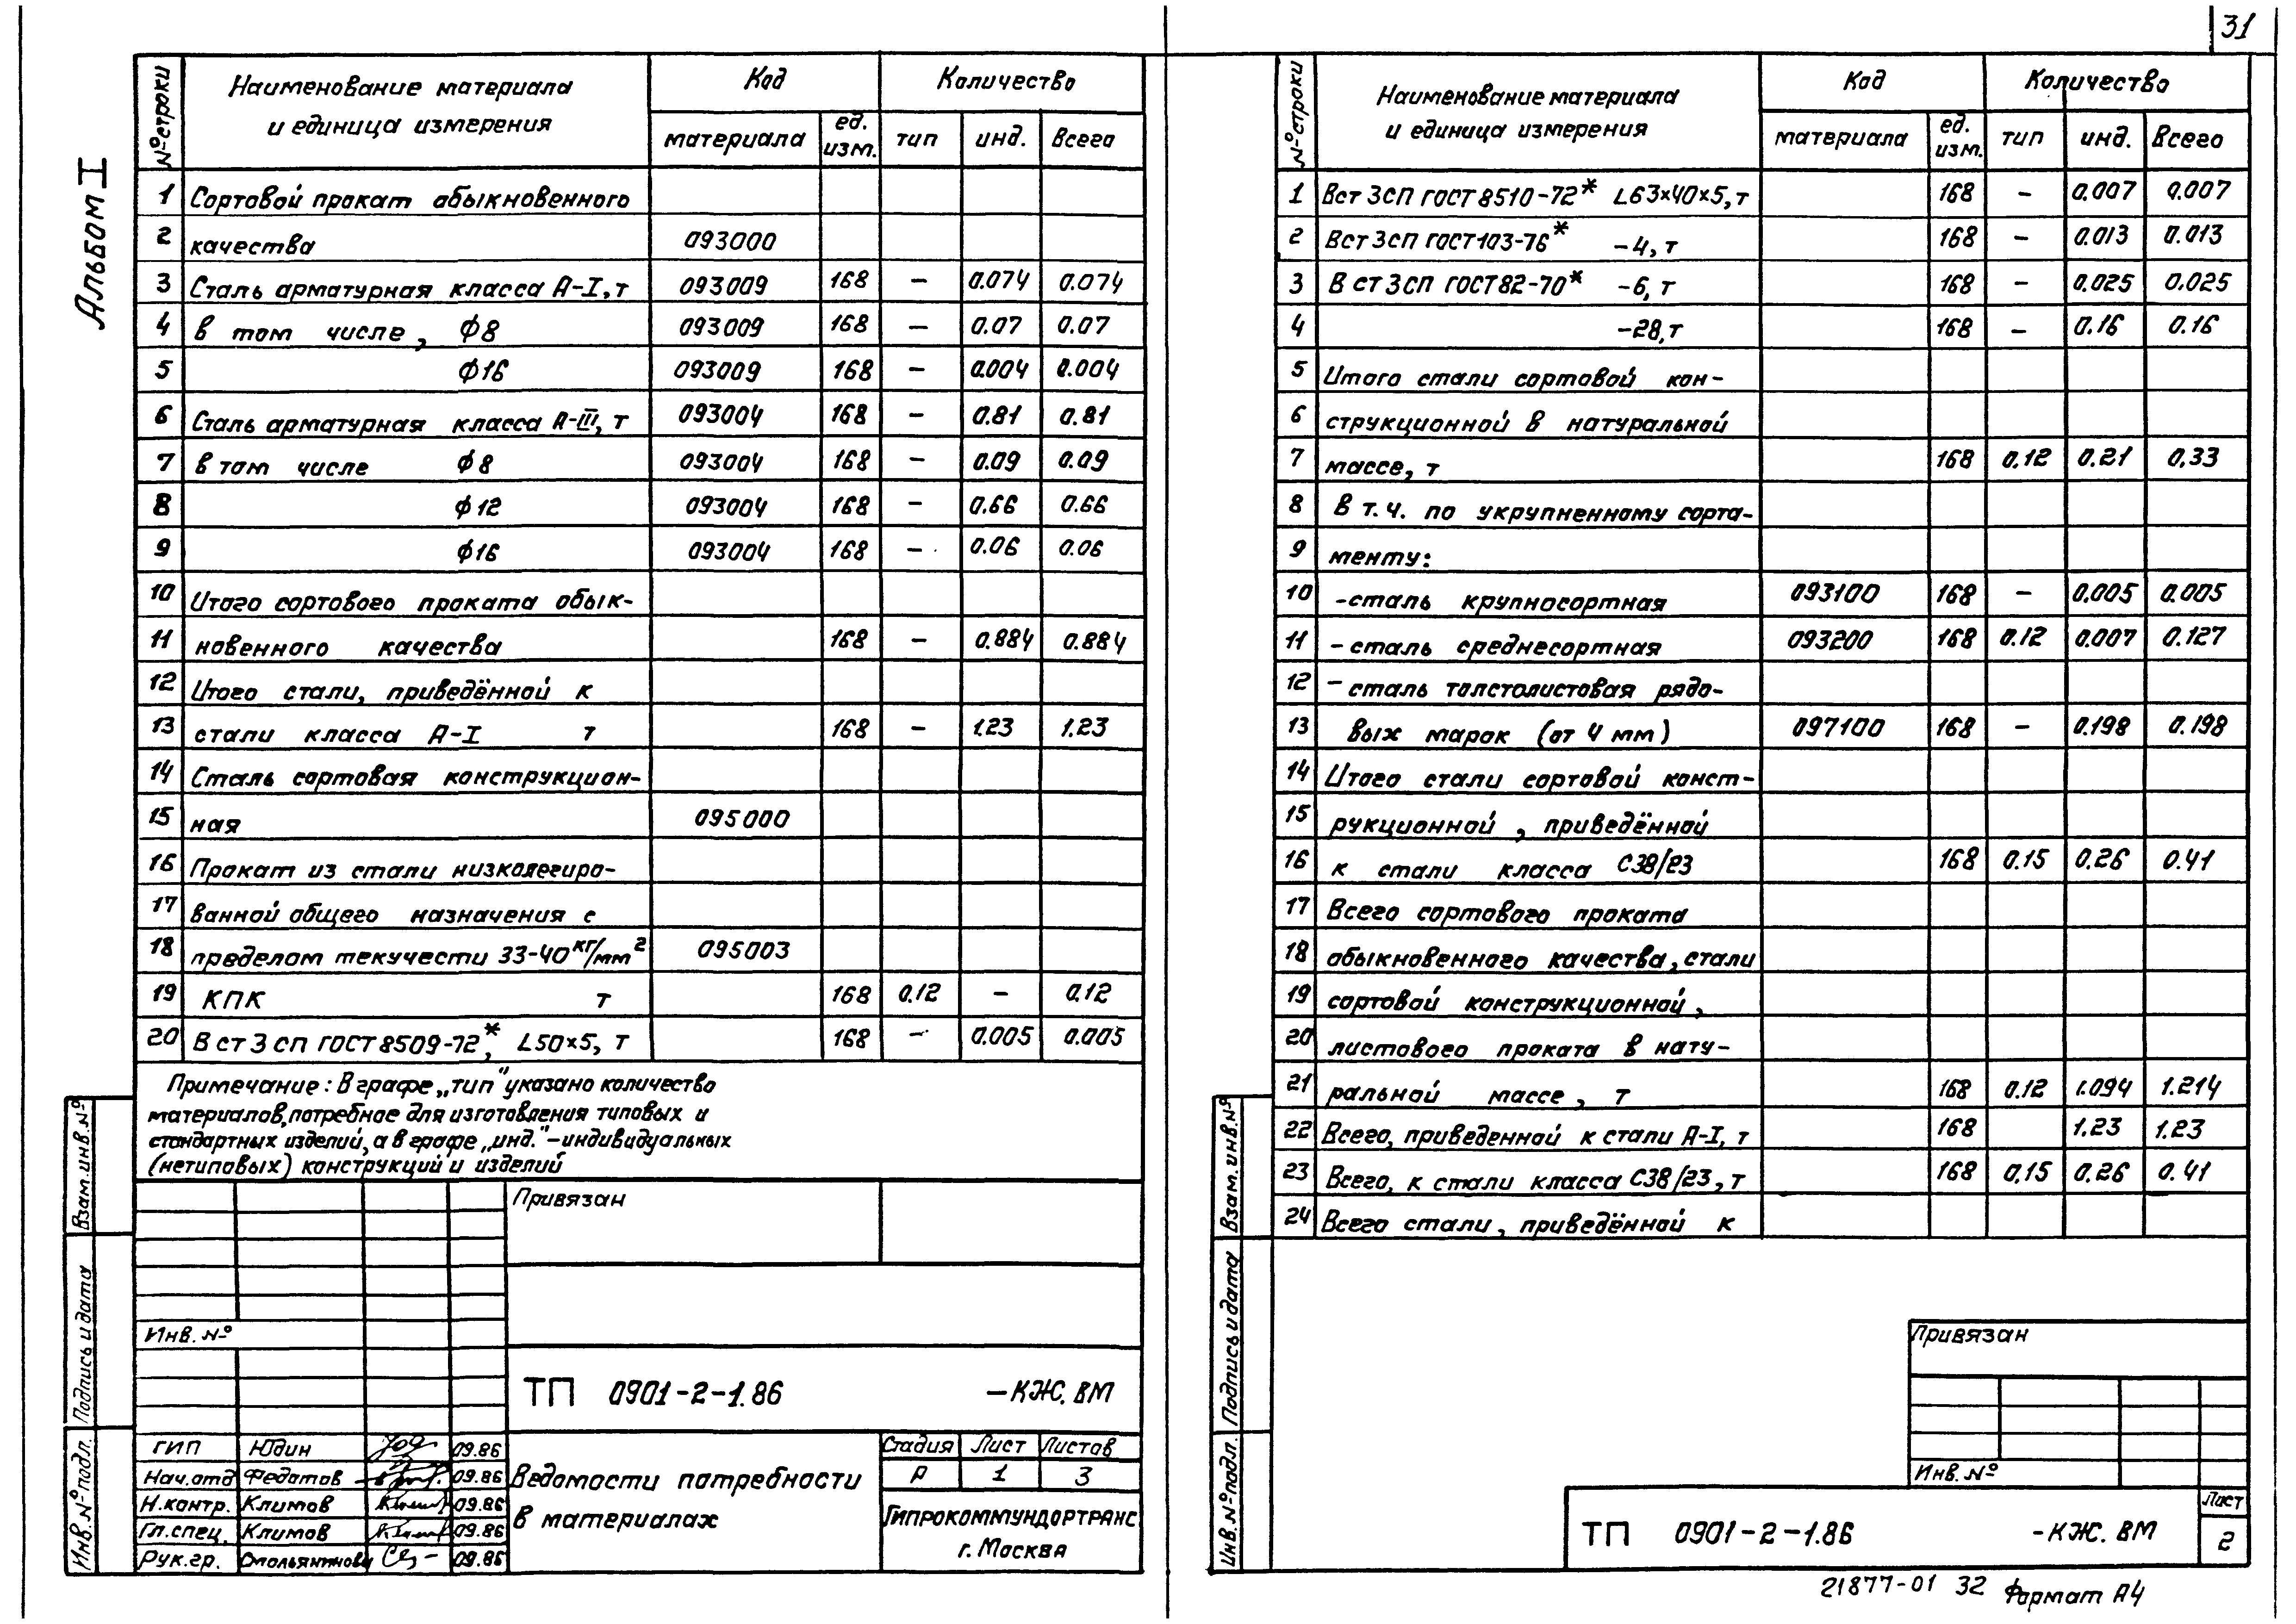 31
Альбом I
№ строки | Наименование материала и единица измерения | Код | Количество
материала | ед. изм. | тип | инд. | Всего
1 Сортовой прокат обыкновенного
2 качества 093000
3 Сталь арматурная класса А-I, т 093009 168 – 0.074 0.074
4 в том числе, ф8 093009 168 – 0.07 0.07
5 ф16 093009 168 – 0.004 0.004
6 Сталь арматурная класса А-III, т 093004 168 – 0.81 0.81
7 в том числе ф8 093004 168 – 0.09 0.09
8 ф12 093004 168 – 0.66 0.66
9 ф16 093004 168 – 0.06 0.06
10 Итого сортового проката обык-
11 новенного качества 168 – 0.884 0.884
12 Итого стали, приведённой к
13 стали класса А-I т 168 – 1.23 1.23
14 Сталь сортовая конструкцион-
15 ная 095000
16 Прокат из стали низколегиро-
17 ванной общего назначения с
18 пределом текучести 33-40 кг/мм² 095003
19 КПК т 168 0.12 – 0.12
20 В ст 3 сп ГОСТ 8509-72*, L50×5, т 168 – 0.005 0.005
Примечание: В графе „тип" указано количество
материалов, потребное для изготовления типовых и
стандартных изделий, а в графе „инд."-индивидуальных
(нетиповых) конструкций и изделий
Привязан
Инв. №
ТП 0901-2-1.86 -КЖ. ВМ
ГИП Юдин 09.86
Нач.отд Федотов 09.86
Н.контр. Климов 09.86
Гл.спец. Климов 09.86
Рук.гр. 09.86
Ведомости потребности
в материалах
Стадия Лист Листов
Р 1 3
Гипрокоммундортранс
г. Москва
Взам.инв.№
Подпись и дата
Инв.№ подл.
№ строки | Наименование материала и единица измерения | Код | Количество
материала | ед. изм. | тип | инд. | Всего
1 Вст 3сп ГОСТ 8510-72* L63×40×5, т 168 – 0.007 0.007
2 Вст 3сп ГОСТ 103-76* -4, т 168 – 0.013 0.013
3 В ст 3сп ГОСТ 82-70* -6, т 168 – 0.025 0.025
4 -28, т 168 – 0.16 0.16
5 Итого стали сортовой кон-
6 струкционной в натуральной
7 массе, т 168 0.12 0.21 0.33
8 в т.ч. по укрупненному сорта-
9 менту:
10 -сталь крупносортная 093100 168 – 0.005 0.005
11 -сталь среднесортная 093200 168 0.12 0.007 0.127
12 -сталь толстолистовая рядо-
13 вых марок (от 4 мм) 097100 168 – 0.198 0.198
14 Итого стали сортовой конст-
15 рукционной, приведённой
16 к стали класса С38/23 168 0.15 0.26 0.41
17 Всего сортового проката
18 обыкновенного качества, стали
19 сортовой конструкционной,
20 листового проката в нату-
21 ральной массе, т 168 0.12 1.094 1.214
22 Всего, приведенной к стали А-I, т 168 1.23 1.23
23 Всего, к стали класса С38/23, т 168 0.15 0.26 0.41
24 Всего стали, приведённой к
Взам.инв.№
Подпись и дата
Инв.№ подл.
Привязан
Инв. №
ТП 0901-2-1.86 -КЖ. ВМ
Лист
2
21877-01 32 Формат А4